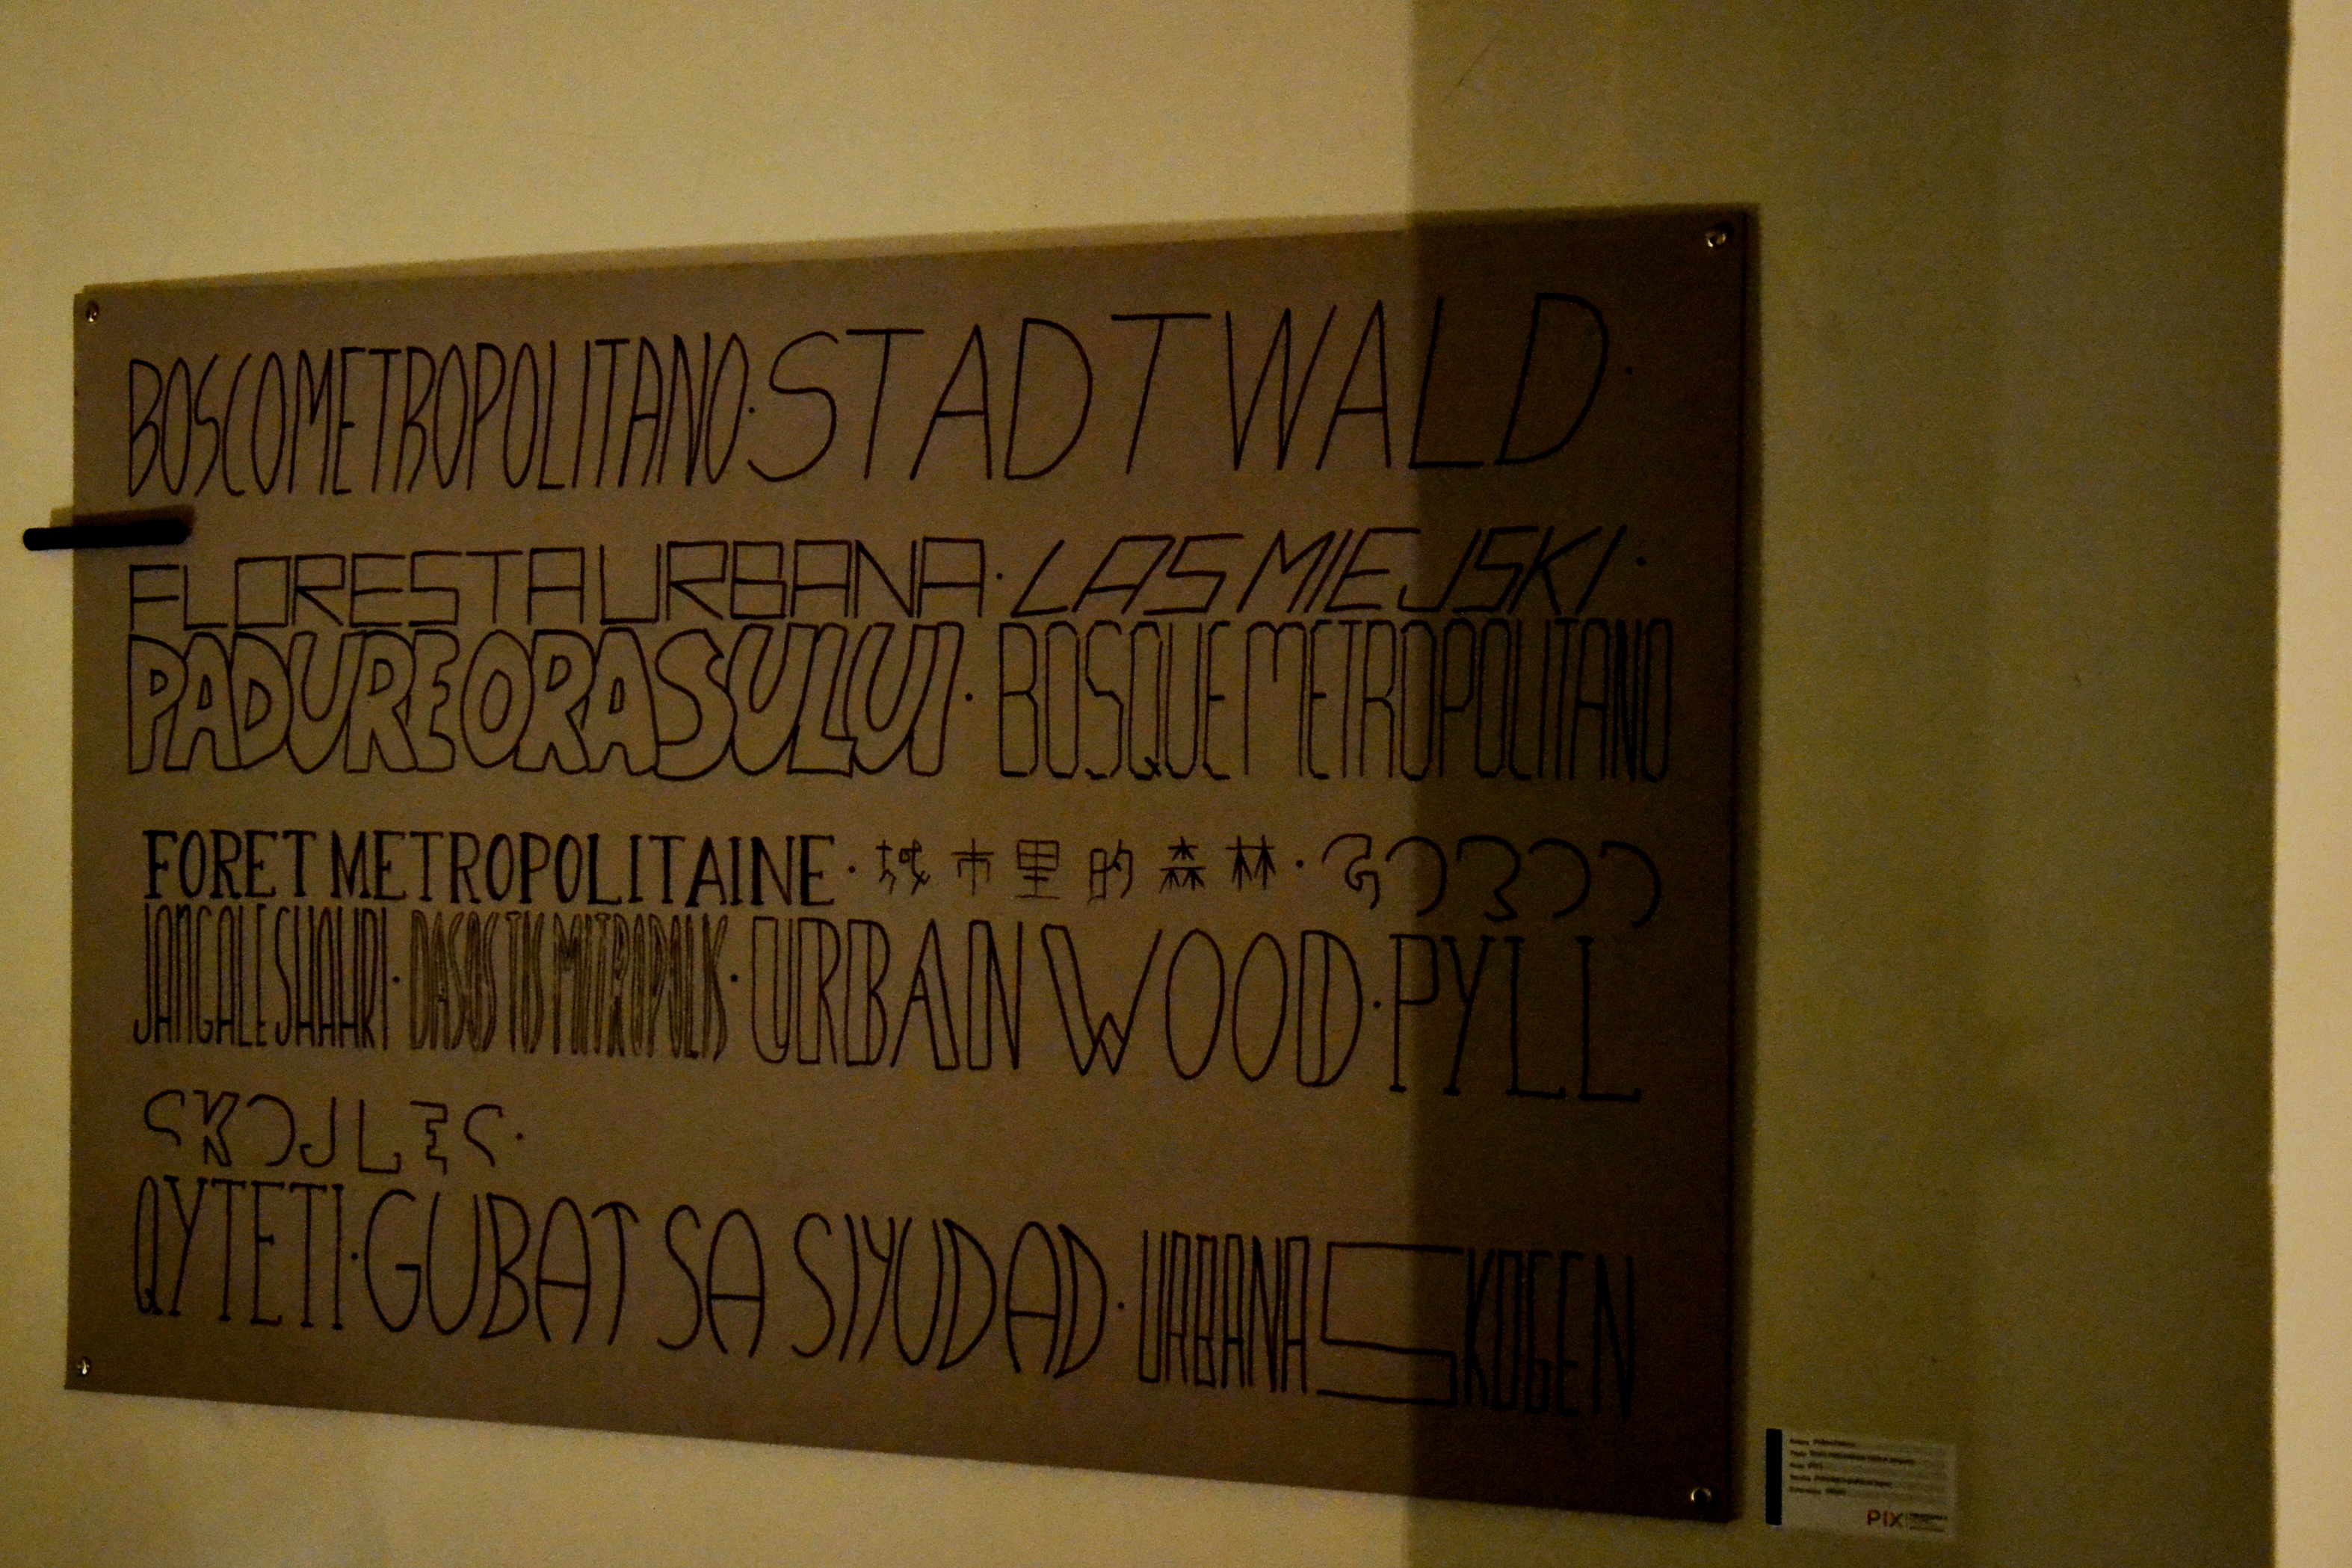 BOSCOMETROPOLITANO·STADTWALD·
FLORESTAURBANA·LAS MIEJSKI·
PADUREORASULUI·BOSQUEMETROPOLITANO
FORET METROPOLITAINE·城市里的森林·
JANGALESHAHRI·DASOS TIS MITROPOLIS·URBAN WOOD·PYLL
QYTETI·GUBAT SA SIYUDAD·URBANA SKOGEN
PIX